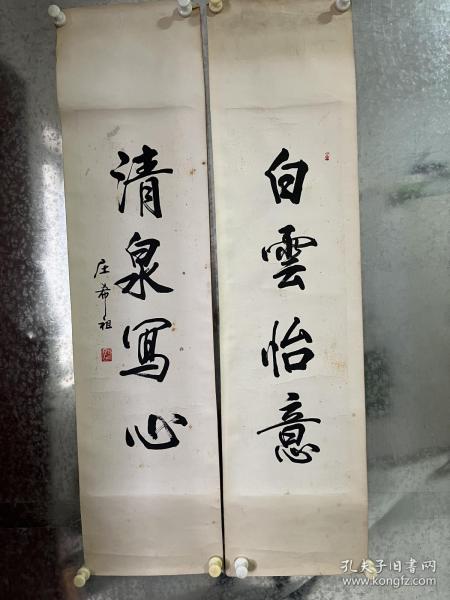 白雲怡意
清泉寫心
庄希祖
孔夫子旧书网
https://www.kongfz.com